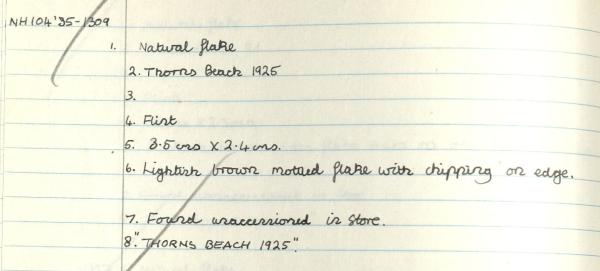 NH104'85-1309
1. Natural flake
2. Thorns Beach 1925
3.
4. Flint
5. 3.5cms X 2.4cms.
6. Lightish brown mottled flake with chipping on edge.
7. Found unaccessioned in store.
8. "THORNS BEACH 1925".